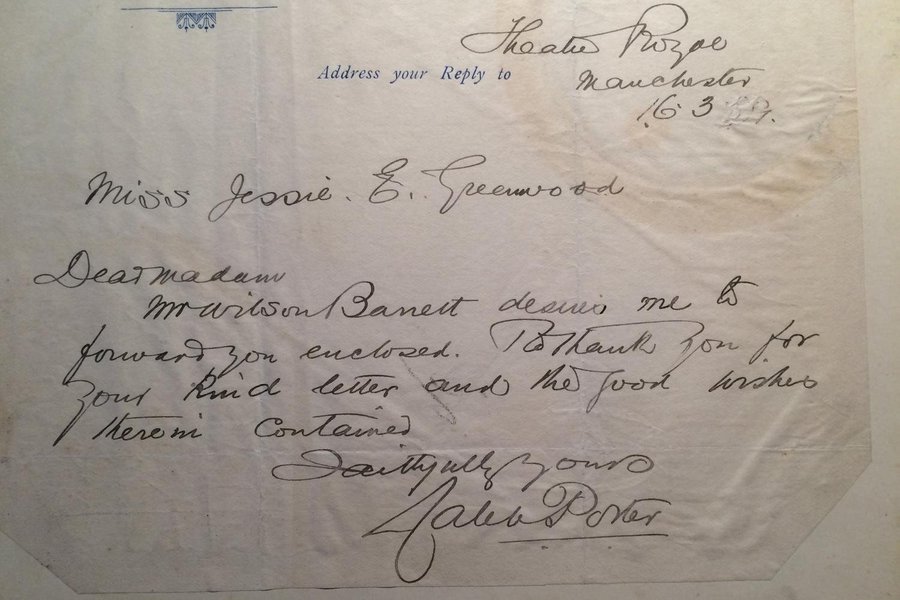 Theatre Royal
Address your Reply to
Manchester
16 3
Miss Jessie. E. Greenwood
Dear Madam
Mr Wilson Barrett desires me to
forward you enclosed. & to thank you for
your kind letter and the good wishes
therein contained
Faithfully yours
Caleb Porter